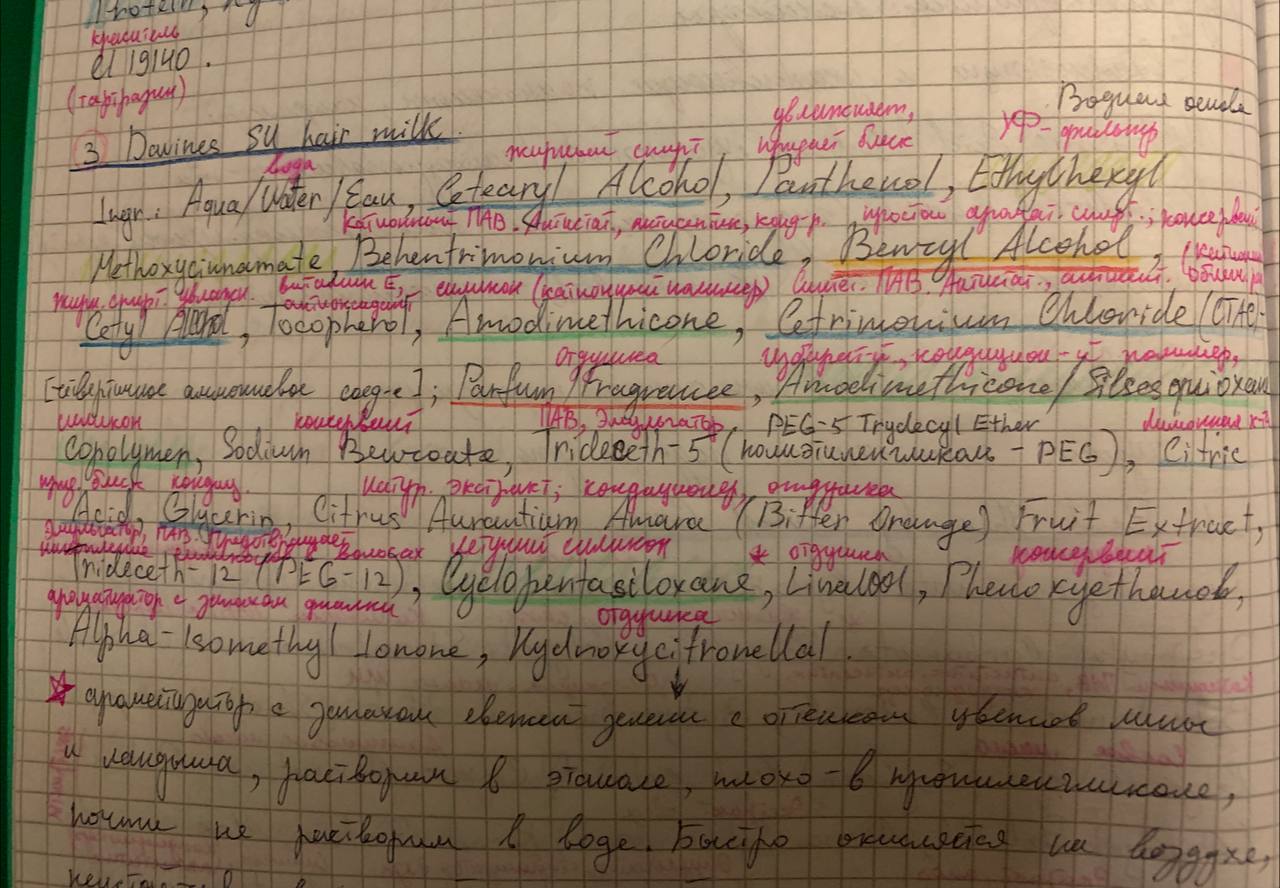 Protein,
краситель
CI 19140.
(тартразин)
Водная основа
увлажняет,
3 Davines SU hair milk.
жирный спирт придаёт блеск УФ-фильтр
вода
Ingr.: Aqua/Water/Eau, Cetearyl Alcohol, Panthenol, Ethylhexyl
катионный ПАВ. Антистат., антисептик, конд-р. простой аромат. спирт.; консервант
Methoxycinnamate, Behentrimonium Chloride, Benzyl Alcohol,
жирн. спирт. увлажн. витамин Е, антиоксидант силикон (катионный полимер) Синтет. ПАВ. Антистат.,
Cetyl Alcohol, Tocopherol, Amodimethicone, Cetrimonium Chloride (CTAC)-
отдушка кондицион-й полимер,
[четвертичное аммониевое соед-е]; Parfum/Fragrance, Amodimethicone/Silsesquioxan
силикон консервант ПАВ, Эмульгатор, PEG-5 Trydecyl Ether Лимонная к-та
Copolymer, Sodium Benzoate, Trideceth-5 (полиэтиленгликоль - PEG), Citric
прид. блеск кондиц. натур. экстракт; кондиционер, отдушка
Acid, Glycerin, Citrus Aurantium Amara (Bitter Orange) Fruit Extract,
эмульгатор, ПАВ. Предотвращает
накопление силиконов в волосах летучий силикон * отдушка консервант
Trideceth-12 (PEG-12), Cyclopentasiloxane, Linalool, Phenoxyethanol,
ароматизатор с запахом фиалки отдушка
Alpha-Isomethyl Ionone, Hydroxycitronellal.
ароматизатор с запахом свежей зелени с оттенком цветов липы
и ландыша, растворим в этаноле, плохо - в пропиленгликоле,
почти не растворим в воде. Быстро окисляется на воздухе,